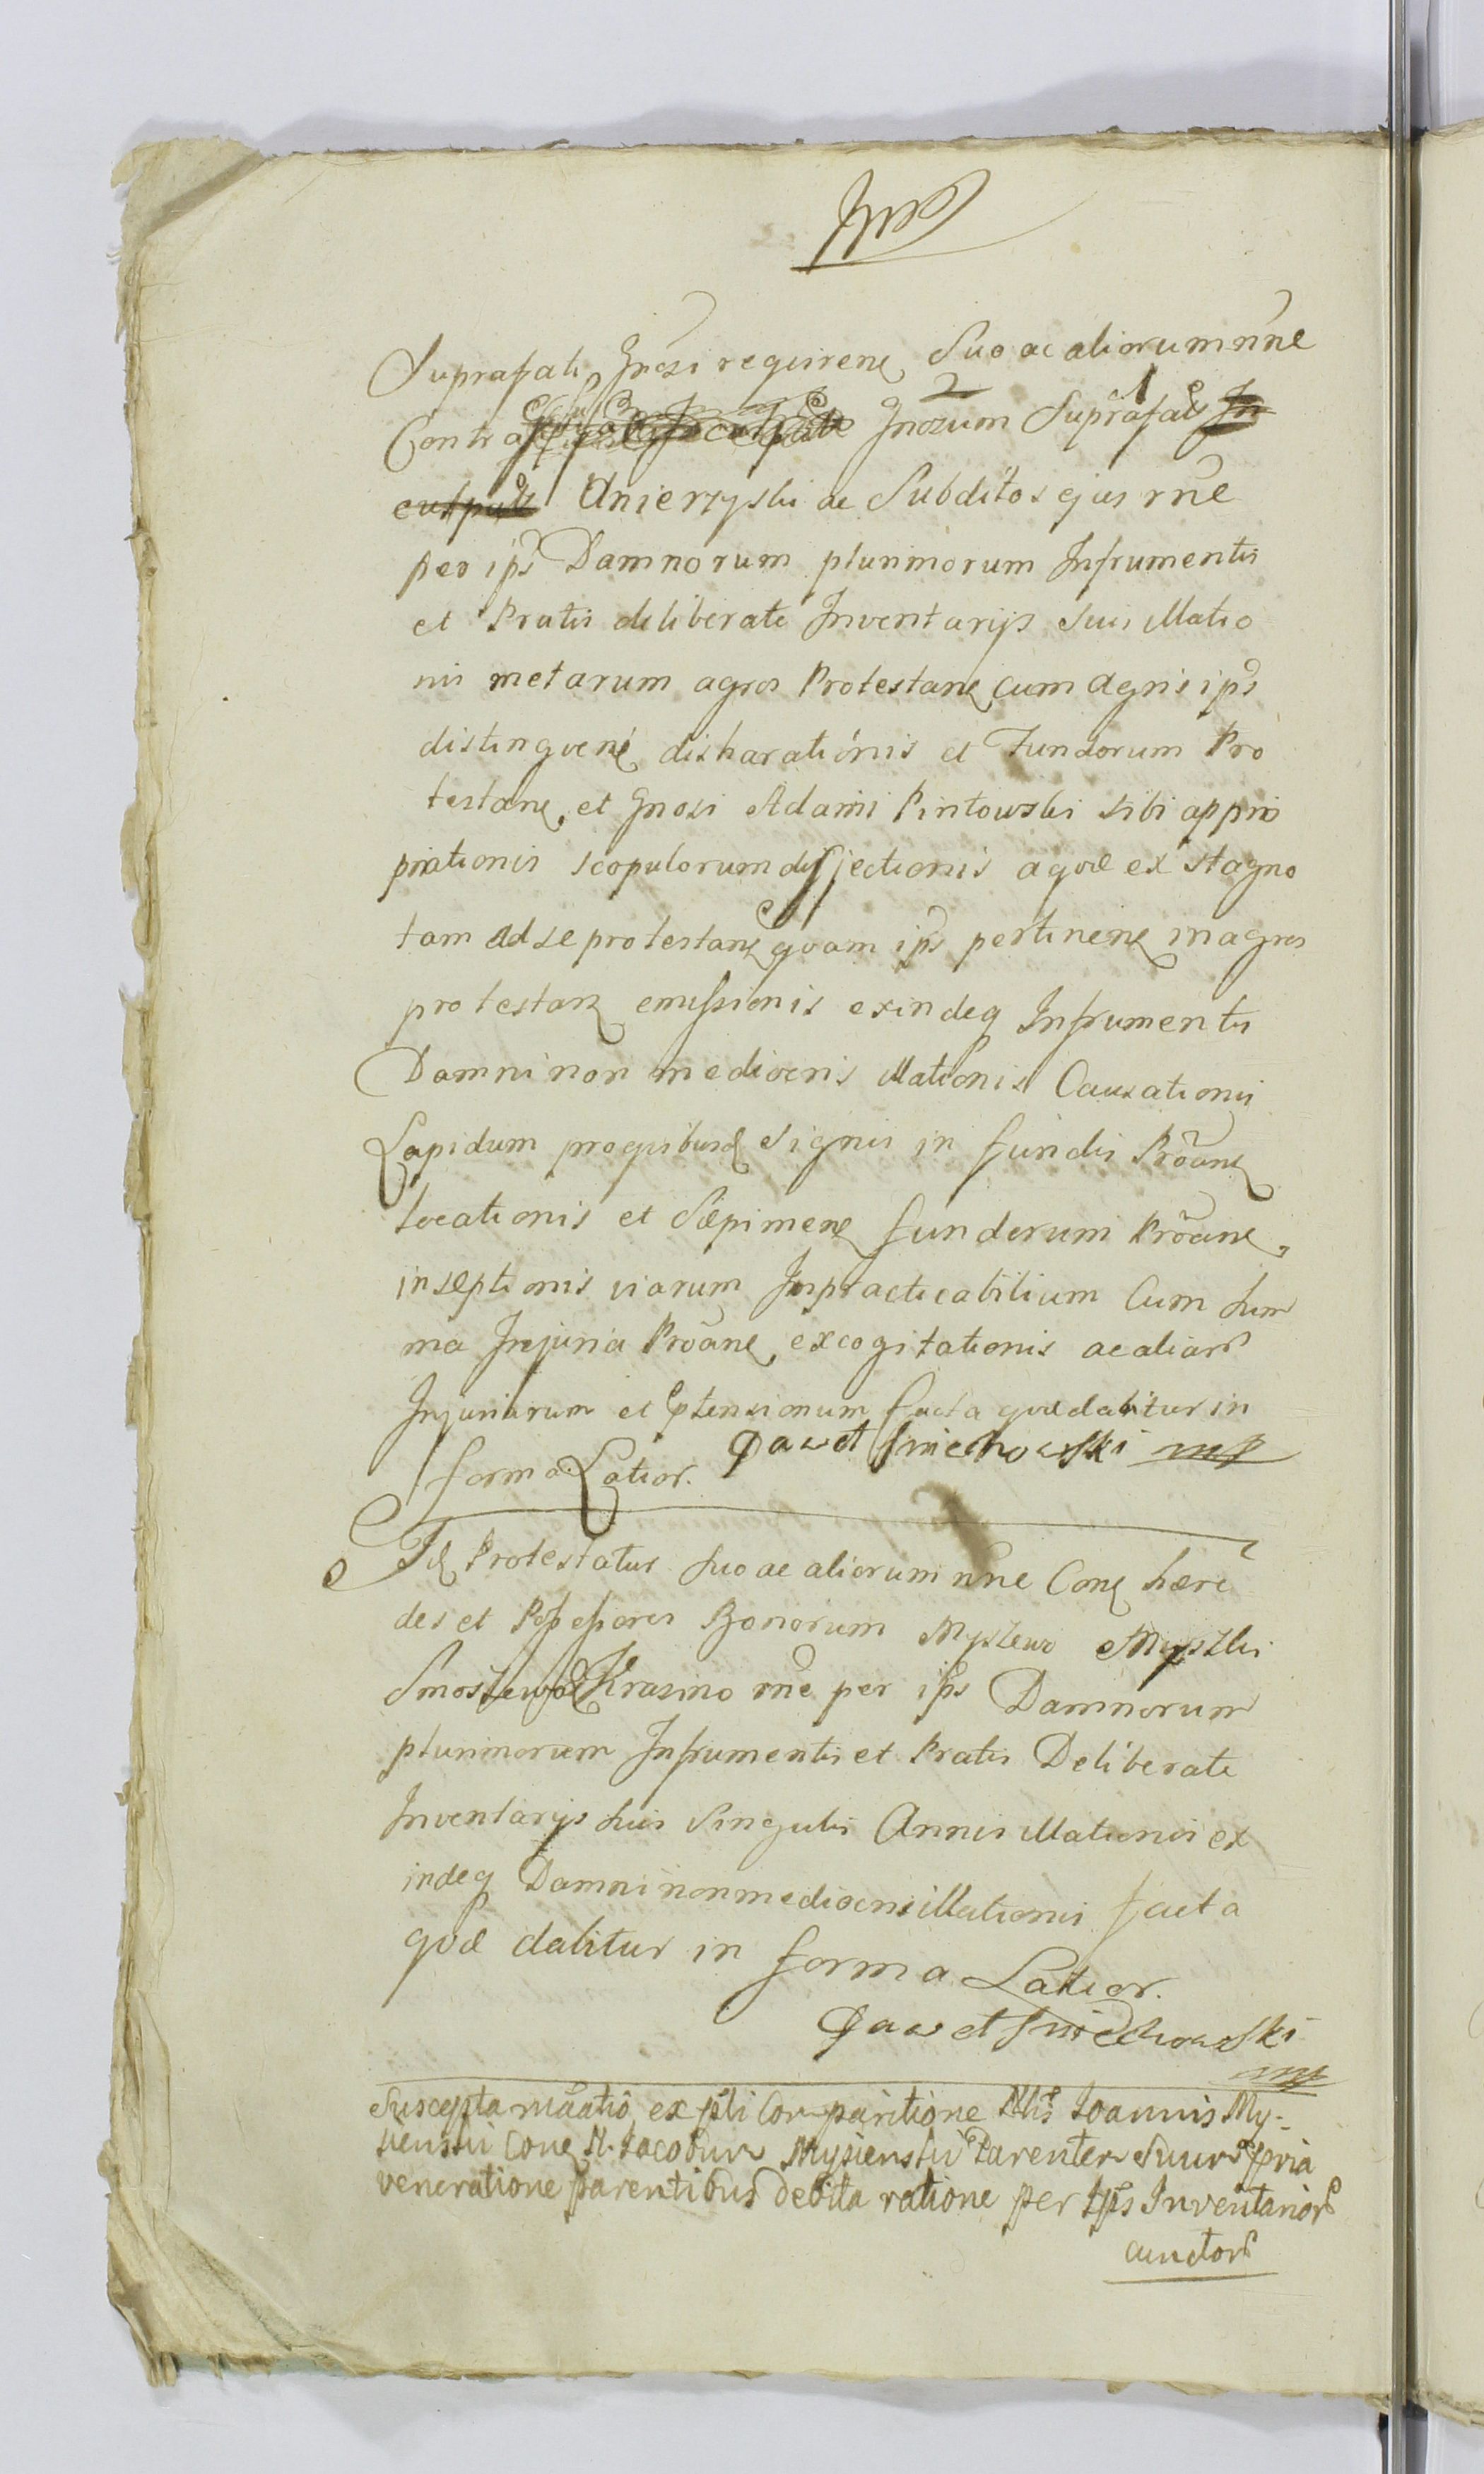 Suprafati Gnosi requirene Suo ac aliorum nne
Contra Gnosum Suprafat
Unierzyski ac Subditos ejus rne
per ips Damnorum plurimorum Infrumentis
et Pratis deliberate Inventarijs Suis illatio
nis metarum agros Protestane cum Agris ips
distinguene disharationis et Fundorum Pro
testane et Gnosi Adami Pintowski sibi appro
priationis scopulorum disjectionis aqvæ ex stagno
tam ad se protestane qvam ips pertinene in agros
protestane emissionis exindeq Infrumentis
Damni non mediocris illationis Causationis
Lapidum pro qvibusd signis in fundis Proane
locationis et Sæpimene fundorum Proane
inseptionis viarum Impracticabilium Cum Sum
ma Injuria Proane excogitationis ac aliar
Injuriarum et Ptensionum facta qvæ dabitur in
forma Latior. Paweł Smiechowski mp
Id Protestatur Suo ac aliorum nne Cone hære
des et Possessores Bonorum Myslewo Myszki
Smoszewo Krasino rne per ips Damnorum
plurimorum Infrumentis et Pratis Deliberate
Inventarijs Suis Singulis Annis illationis ex
indeq Damni non mediocris illationis facta
qvæ dabitur in forma Latior.
Paweł Smiechowski
mp
Suscepta maatio ex psti Comparitione Nblis Joannis My-
sienski Cone N. Jacobum Mysienski Parentem Suum spria
veneratione parentibus debita ratione per Ips Inventarior
cunctor